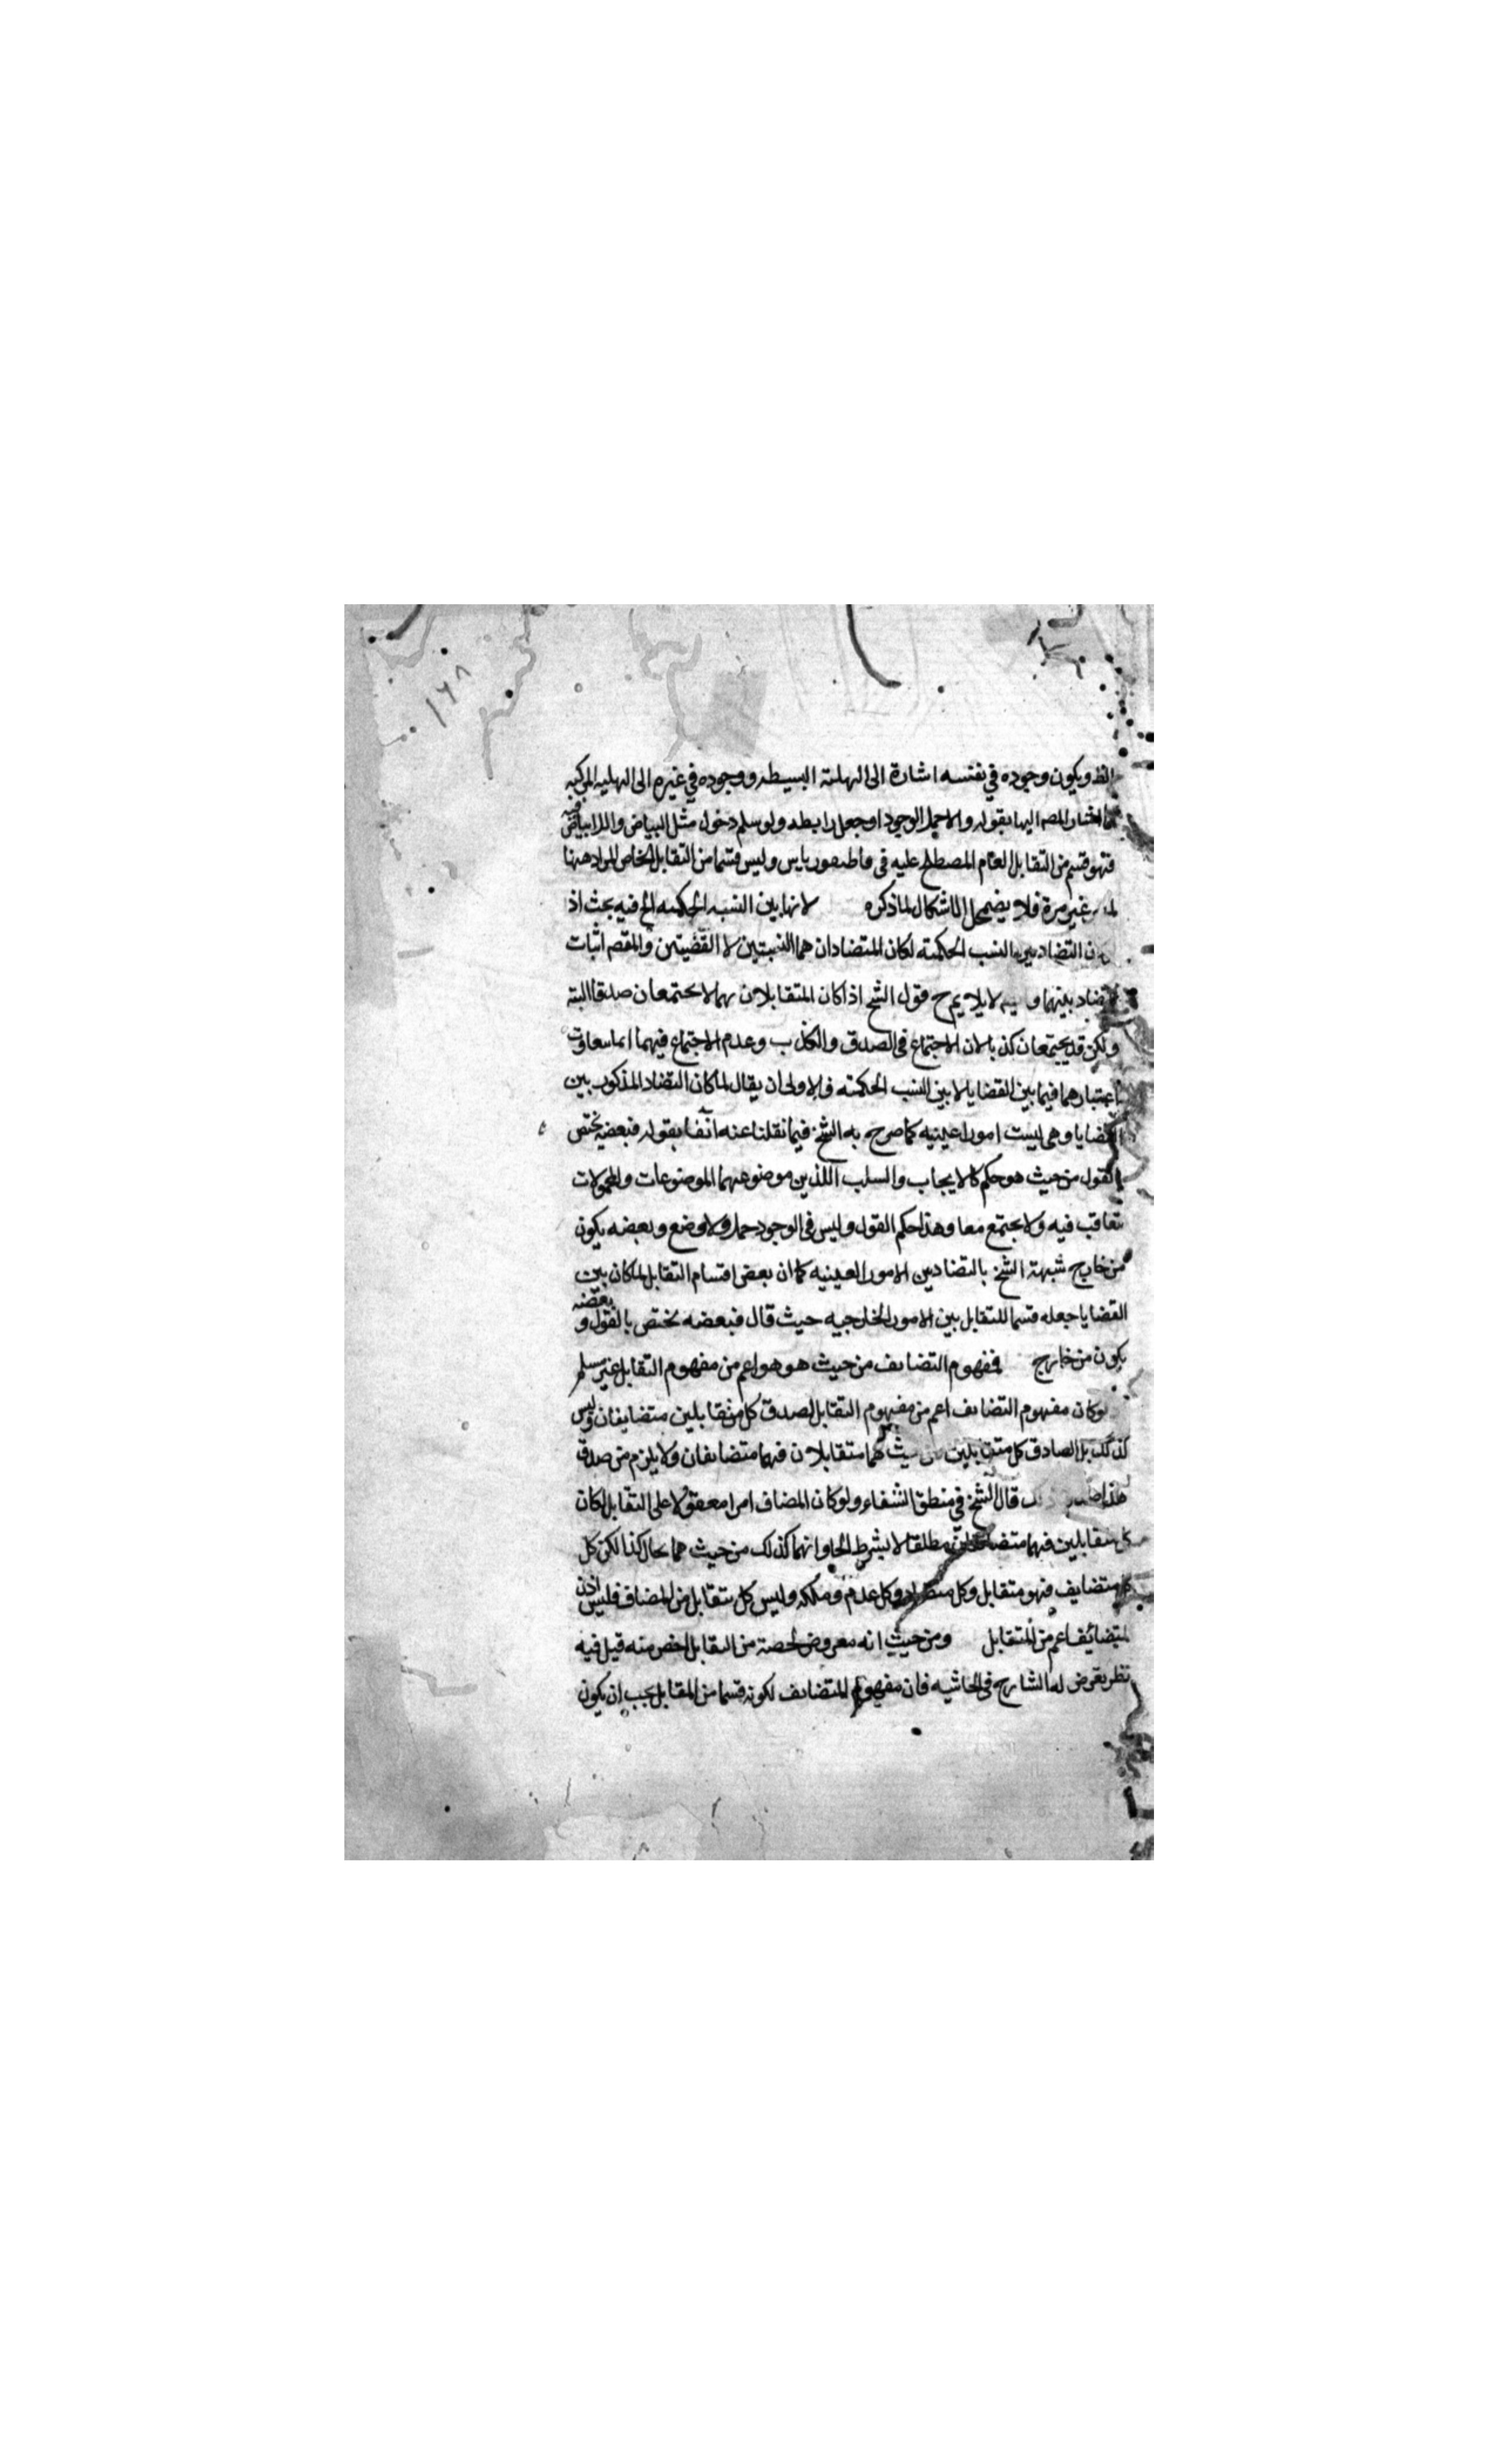 ١٦٨
الظ ويكون وجوده في نفسه اشارة الى الهلية البسيطه ووجوده في غيره الى الهليه المركبه
كما اشار المصه اليها بقوله والاحمل الوجود او جعل رابطه ولو سلم دخول مثل البياض واللابياض فيه
فهو قسم من التقابل العام المصطلح عليه في قاطيغورياس وليس قسما من التقابل الخاص المراد ههنا
غير مرة فلا يضمحل الاشكال لما ذكره لانها بين النسبه الحكميه الخ فيه بحث اذ
التضاد بين النسب الحكميته لكان المتضادان هما النسبتين لا القضيتين والمقصه اثبات
التضاد بينهما لا يلايم ح قول الشيخ اذا كان المتقابلان بهما لا يجتمعان صدقا البته
ولكن قد يجتمعان كذبا لان الاجتماع في الصدق والكذب وعدم الاجتماع فيهما انما
اعتبارهما فيما بين القضايا لا بين النسب الحكميته فالاولى ان يقال لما كان التضاد المذكور بين
القضايا وهي ليست امورا عينيه كما صرح به الشيخ فيما نقلنا عنه آنفا بقوله فبعضه يختص
بالقول من حيث هو حكم كالايجاب والسلب اللذين موضوعهما الموضوعات والمحمولات
تتعاقب فيه ولا يجتمع معا وهذا حكم القول وليس في الوجود حمل ولا وضع وبعضه يكون
من خارج شبهة الشيخ بالتضاد بين الامور العينيه كما ان بعض اقسام التقابل لما كان بين
القضايا جعله قسما للتقابل بين الامور الخارجيه حيث قال فبعضه يختص بالقول وبعضه
يكون من خارج فمفهوم التضايف من حيث هو هو اعم من مفهوم التقابل غير مسلم
لو كان مفهوم التضايف اعم من مفهوم التقابل لصدق كل متقابلين متضايفان وليس
كذلك بل الصادق كل متقابلين من حيث هما متقابلان فهما متضايفان ولا يلزم من صدق
هذا قال الشيخ في منطق الشفاء ولو كان المضاف امرا معقولا على التقابل لكان
كل متقابلين فهما متضايفان مطلقا لا بشرط الحاو انهما كذلك من حيث هما بحال كذا لكن كل
متضايف فهو متقابل وكل متضاد وكل عدم وملكه وليس كل متقابل من المضاف فليس اذن
المتضائف اعم من المتقابل ومن حيث انه معروض لحصة من التقابل اخص منه قيل فيه
نظر يعرض له الشارح في الحاشيه فان مفهوم المتضايف لكونه قسما من المقابل يجب ان يكون